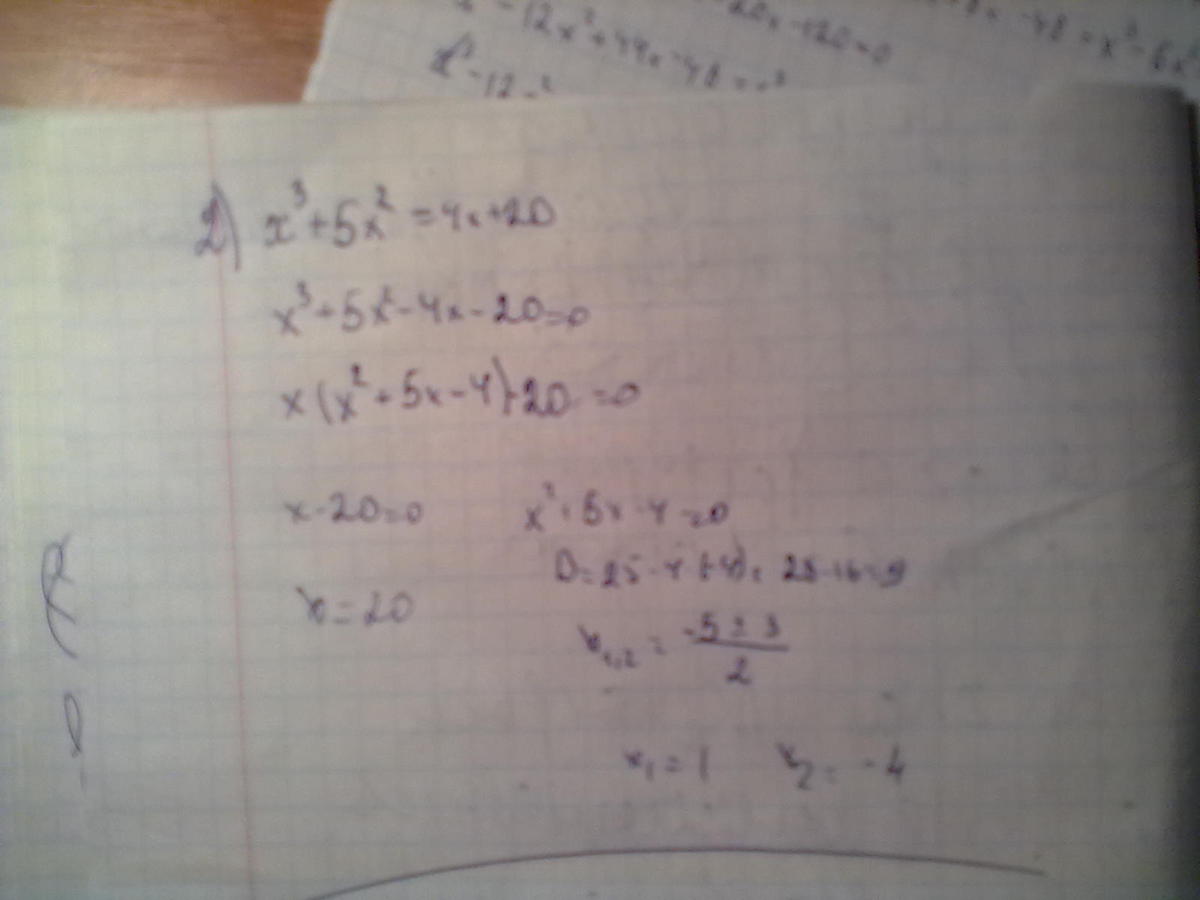 -12x²+44x-48=x³
20x-120=0
-48=x³-6x²
x³-12x²
2) x³+5x²=4x+20
x³+5x²-4x-20=0
x(x²+5x-4)-20=0
x-20=0 x²+5x-4=0
D=25-4(-4)=25-16=9
x=20
x₁,₂=\frac{-5±3}{2}
x₁=1 x₂=-4